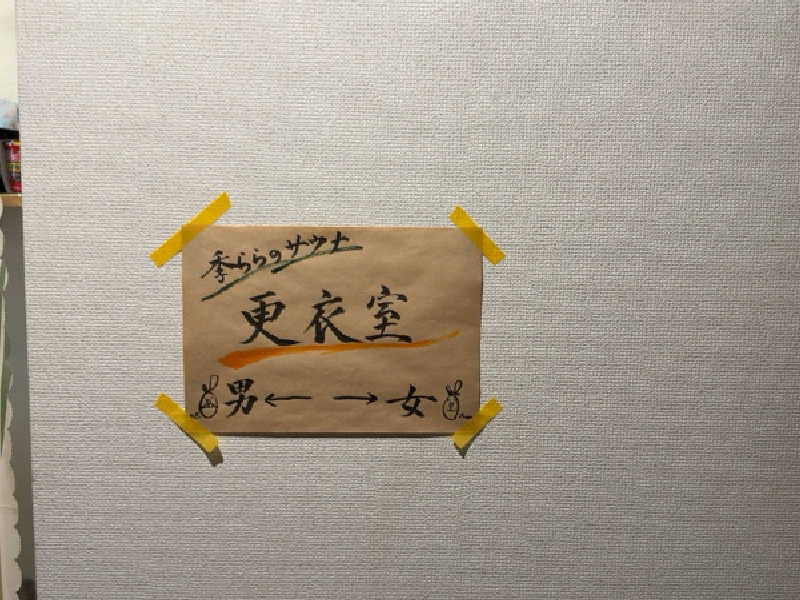 季ららのサウナ
更衣室
男← →女